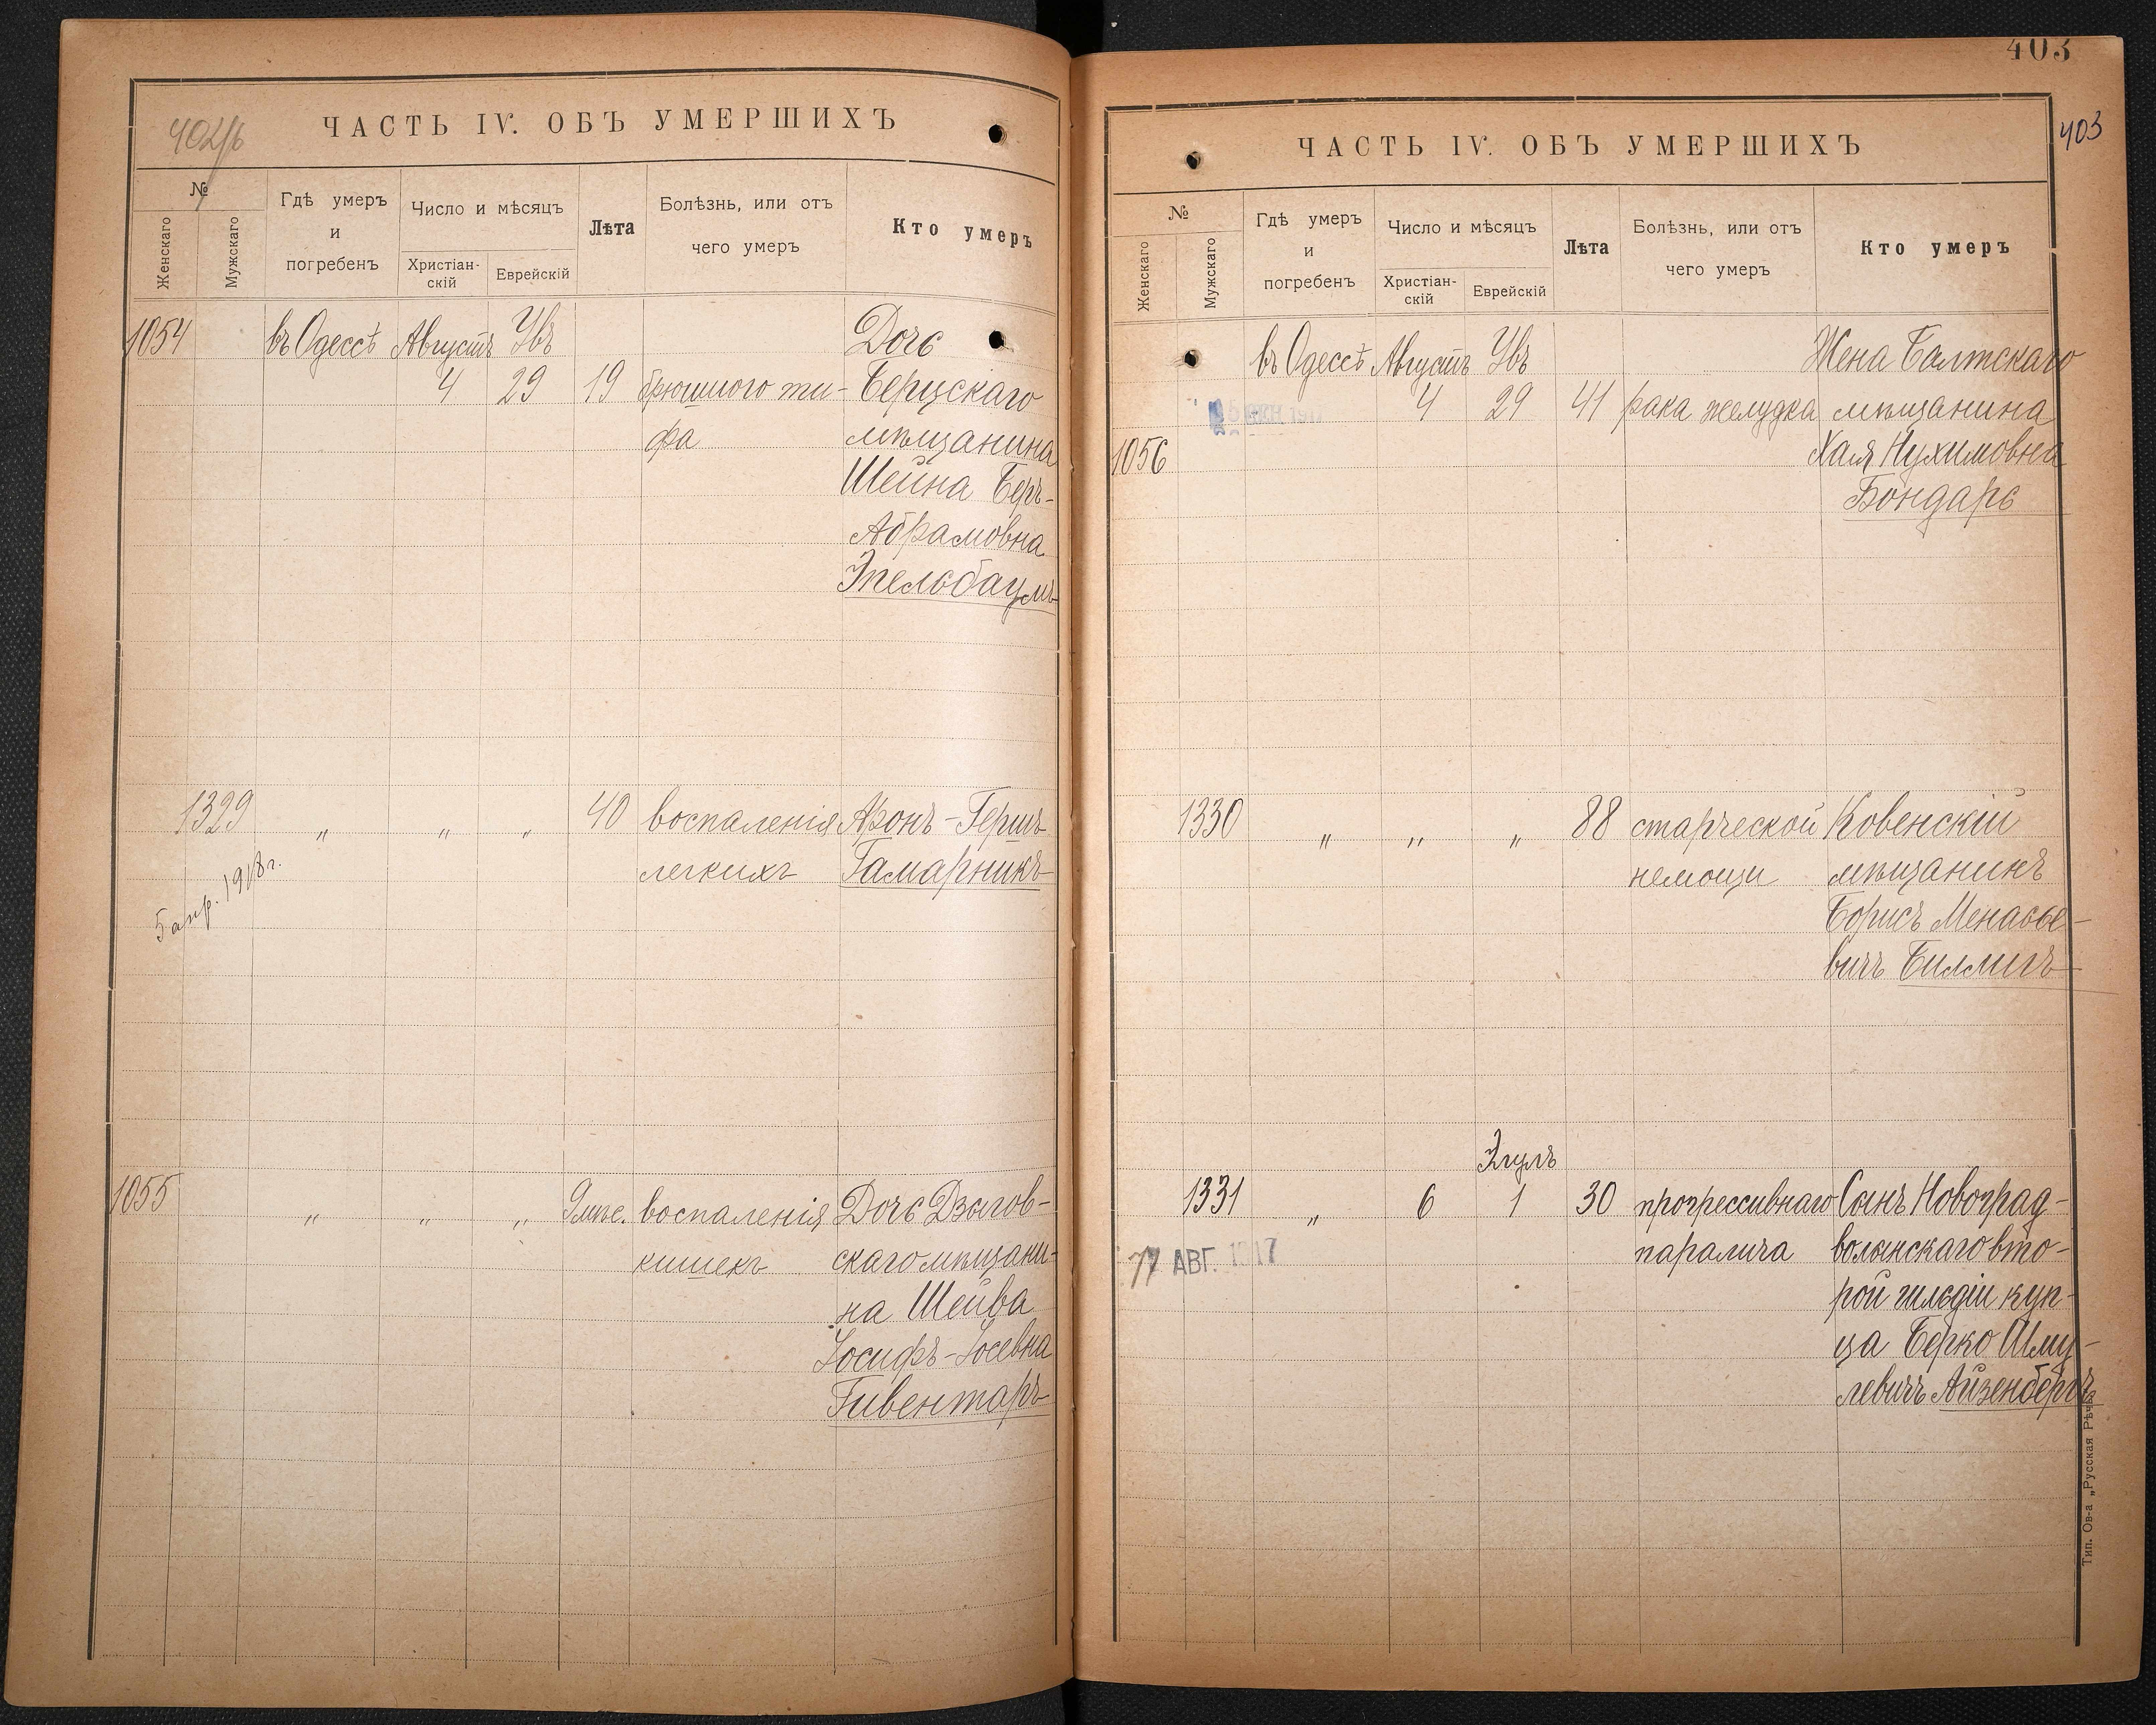 402/б
ЧАСТЬ IV. ОБЪ УМЕРШИХЪ
№
Женскаго
Мужскаго
Гдѣ умеръ
и
погребенъ
Число и мѣсяцъ
Христіан-
скій
Еврейскій
Лѣта
Болѣзнь, или отъ
чего умеръ
Кто умеръ
1054 въ Одессѣ Августъ Увъ Дочь
4 29 19 брюшного ти- Берцскаго
фа мѣщанина
Шейна Бер-
Абрамовна
Эпельбаумъ
1329 „ „ „ 40 воспаленія Аронъ-Гершъ
легкихъ Гамарникъ
5 апр. 1918 г.
1055 „ „ „ 9 мѣс. воспаленія Дочь Дзыгов-
кишекъ скаго мѣщани-
на Шейва
Іосифъ-Іосевна
Гивентаръ
403
403
ЧАСТЬ IV. ОБЪ УМЕРШИХЪ
№
Женскаго
Мужскаго
Гдѣ умеръ
и
погребенъ
Число и мѣсяцъ
Христіан-
скій
Еврейскій
Лѣта
Болѣзнь, или отъ
чего умеръ
Кто умеръ
въ Одессѣ Августъ Увъ Жена Балтскаго
4 29 41 рака желудка мѣщанина
1056 Хая Нухимовна
Бондарь
1330 „ „ „ 88 старческой Ковенскій
немощи мѣщанинъ
Борисъ Менасье-
вичъ Биллигъ
Элулъ
1331 „ 6 1 30 прогрессивнаго Сынъ Новоград-
паралича волынскаго вто-
77 АВГ. 1917
рой гильдіи куп-
ца Берко Шму-
левичъ Айзенбергъ
Тип. Ов-а „Русская Рѣчь"